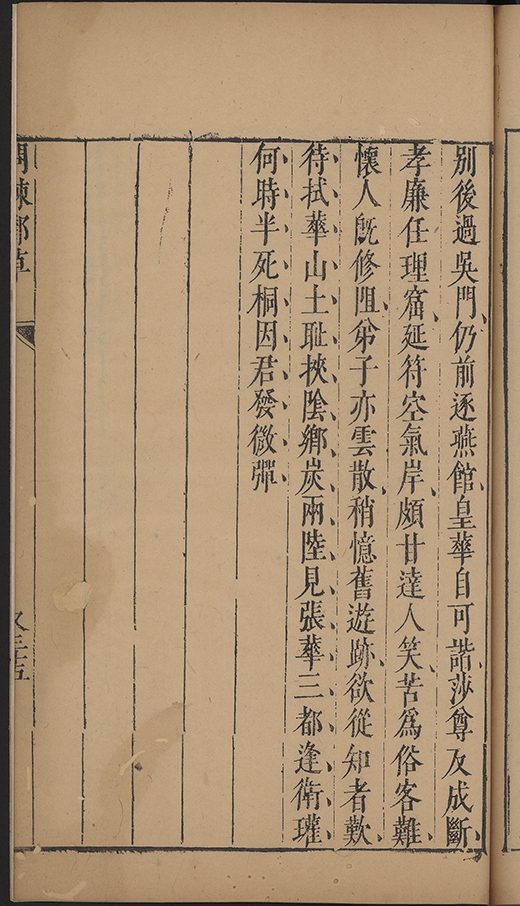 別後過吳門仍前逐燕館皇華自可諧莎尊反成斷
孝廉任理窟延符空氣岸頗甘達人笑苦爲俗客難
懷人旣修阻弟子亦雲散稍憶舊遊跡欲從知者歎
待拭華山土耻挾陰鄉炭兩陸見張華三都逢衛瓘
何時半死桐因君發微彈